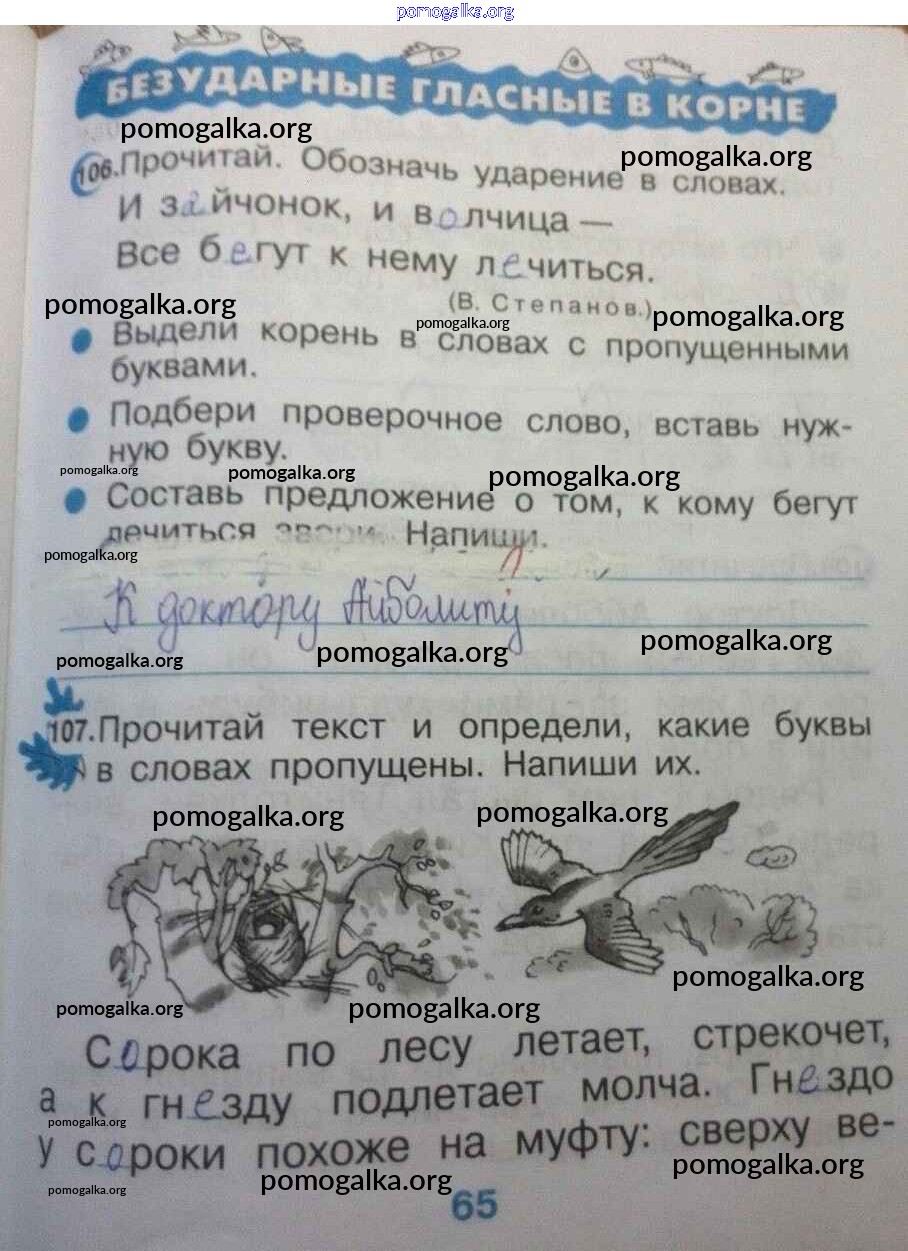 pomogalka.org
БЕЗУДАРНЫЕ ГЛАСНЫЕ В КОРНЕ
pomogalka.org
pomogalka.org
106. Прочитай. Обозначь ударение в словах.
И зайчонок, и волчица —
Все бегут к нему лечиться.
(В. Степанов.)
pomogalka.org
pomogalka.org
pomogalka.org
Выдели корень в словах с пропущенными
буквами.
Подбери проверочное слово, вставь нуж-
ную букву.
pomogalka.org
pomogalka.org
pomogalka.org
Составь предложение о том, к кому бегут
лечиться звери. Напиши.
pomogalka.org
К доктору Айболиту
pomogalka.org
pomogalka.org
pomogalka.org
107. Прочитай текст и определи, какие буквы
в словах пропущены. Напиши их.
pomogalka.org
pomogalka.org
pomogalka.org
pomogalka.org
pomogalka.org
Сорока по лесу летает, стрекочет,
а к гнезду подлетает молча. Гнездо
pomogalka.org
у сороки похоже на муфту: сверху ве-
pomogalka.org
pomogalka.org
pomogalka.org
65